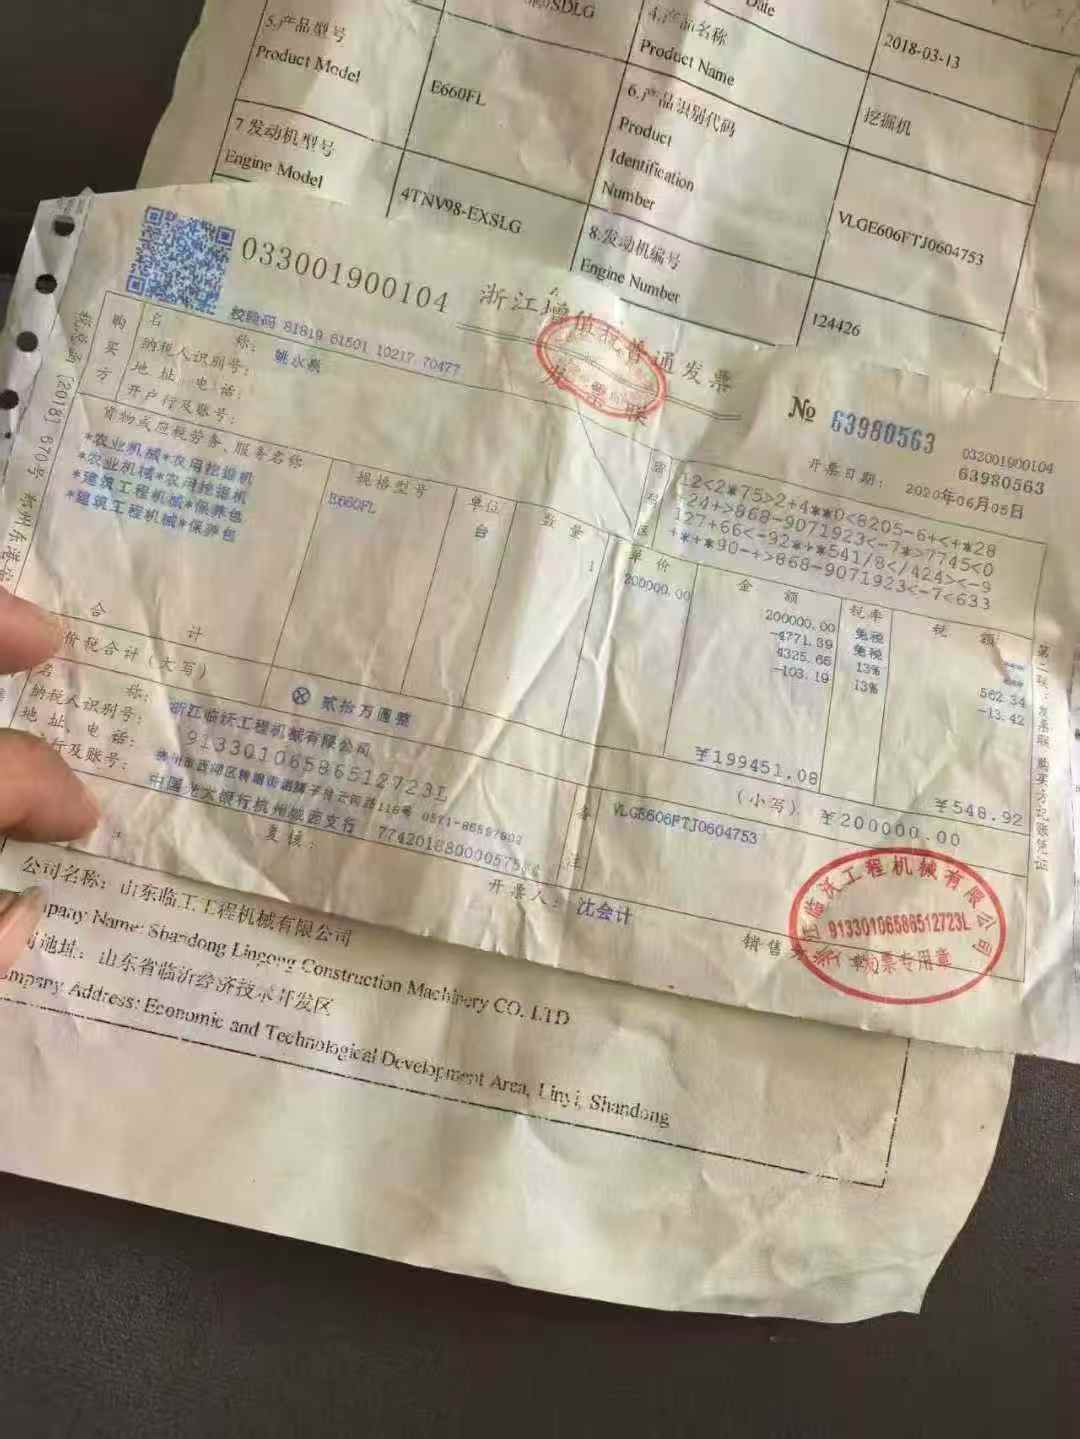 SDLG
Date
2018-03-13
5.产品型号
Product Model
E660FL
4.产品名称
Product Name
挖掘机
7发动机型号
Engine Model
4TNV98-EXSLG
6.产品识别代码
Product
Identification
Number
VLGE606FTJ0604753
8.发动机编号
Engine Number
124426
033001900104
浙江增值税普通发票
发票联
校验码 81819 61501 10217 70477
№ 63980563
033001900104
63980563
开票日期: 2020年06月05日
购买方
名称:
纳税人识别号:
地址、电话:
开户行及账号:
12<2*75>2+4**0<8205-6+<+*28
-24+>968-9071923<-7*>7745<0
127+66<-92*+*541/8</424><-9
+*+*90-+>868-9071923<-7<633
货物或应税劳务、服务名称
规格型号
单位
数量
单价
金额
税率
税额
*农业机械*农用挖掘机
E660FL
台
1
200000.00
200000.00
免税
***
*农业机械*农用挖掘机
-4771.39
免税
***
*建筑工程机械*保养包
4325.66
13%
562.34
*建筑工程机械*保养包
-103.19
13%
-13.42
合计
¥199451.08
¥548.92
价税合计(大写)
ⓧ 贰拾万圆整
(小写) ¥200000.00
名称: 浙江临沃工程机械有限公司
纳税人识别号: 91330106586512723L
地址、电话:
行及账号: 中国光大银行杭州城西支行
备注
VLGE606FTJ0604753
复核:
开票人: 沈会计
销售方
临沃工程机械有限公司
91330106586512723L
发票专用章
第二联:发票联 购买方记账凭证
公司名称: 山东临工工程机械有限公司
mpany Name: Shandong Lingong Construction Machinery CO. LTD
地址: 山东省临沂经济技术开发区
ompany Address: Economic and Technological Development Area, Linyi, Shandong